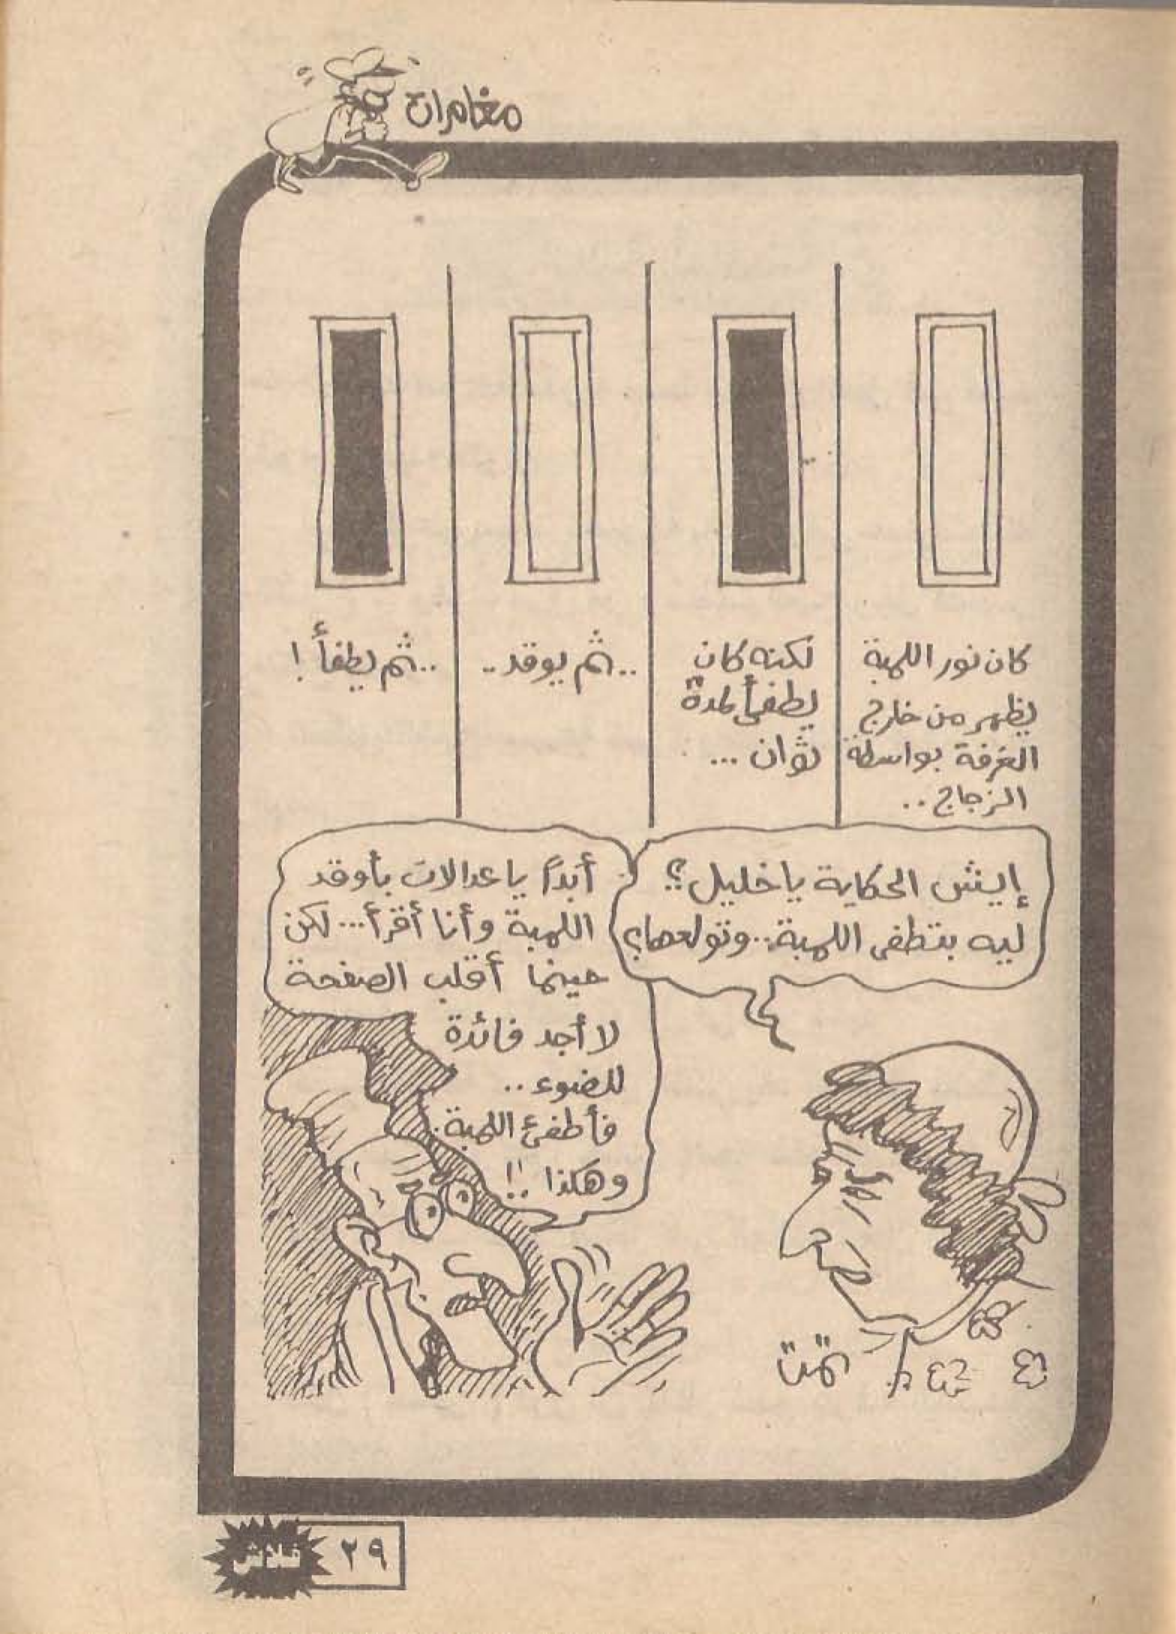 مغامرات
كان نور اللمبة
يظهر من خارج
الغرفة بواسطة
الزجاج..
لكنه كان
يطفأ لمدة
ثوان ...
..ثم يوقد..
..ثم يطفأ !
إيش الحكاية يا خليل؟
ليه بتطفى اللمبة..وتولعها؟
أبدًا يا عدالات بأوقد
اللمبة وأنا أقرأ...لكن
حينما أقلب الصفحة
لا أجد فائدة
للضوء..
فأطفئ اللمبة.
وهكذا..!!
"تمت"
فلاش ٢٩